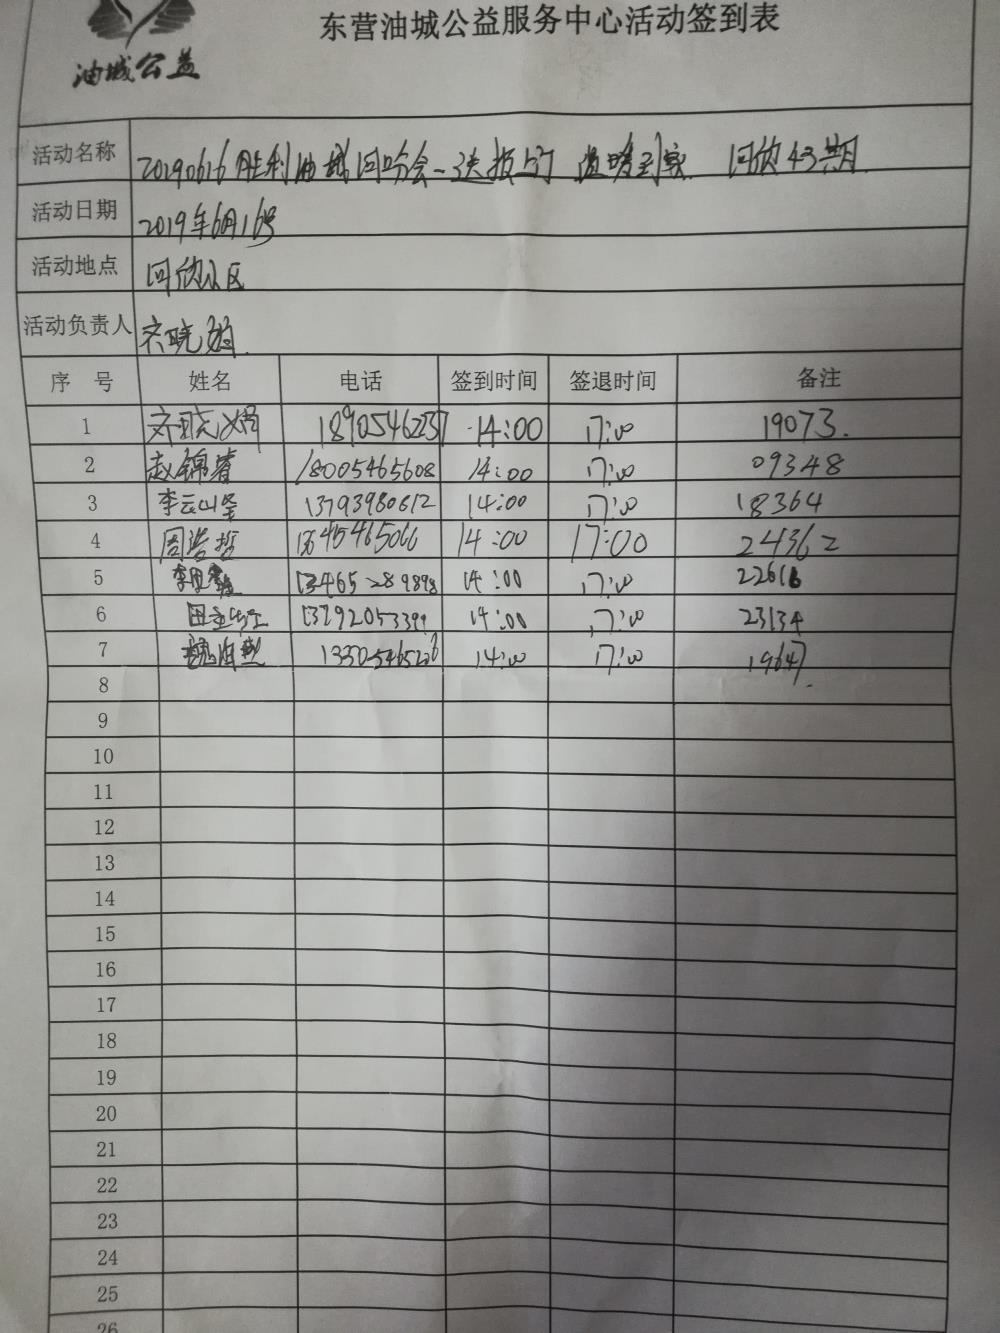 东营油城公益服务中心活动签到表
油城公益
活动名称 20190616胜利油城同 分会-送报上门 温暖到家 同欣43期
活动日期 2019年6月16号
活动地点 同欣小区
活动负责人 齐晓
序号 姓名 电话 签到时间 签退时间 备注
1 齐晓 18905462237 14:00 17:00 19073.
2 赵锦睿 18005465608 14:00 17:00 09348
3 李云峰 13793980612 14:00 17:00 18364
4 周浩哲 13645465066 14:00 17:00 24362
5 李 13465289898 14:00 17:00 22618
6 田 13792053399 14:00 17:00 23134
7 魏 13305465226 14:00 17:00 19647
8
9
10
11
12
13
14
15
16
17
18
19
20
21
22
23
24
25
26